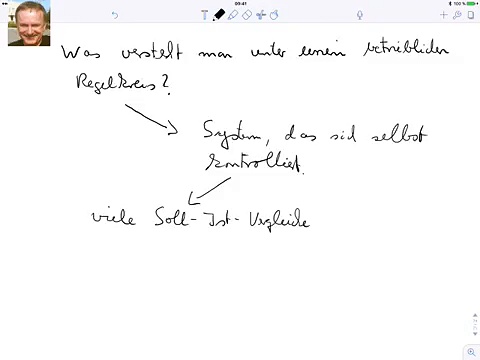 00:41
100 %
Was versteht man unter einem betrieblichen
Regelkreis?
System, das sich selbst
kontrolliert.
viele Soll-Ist-Vergleiche